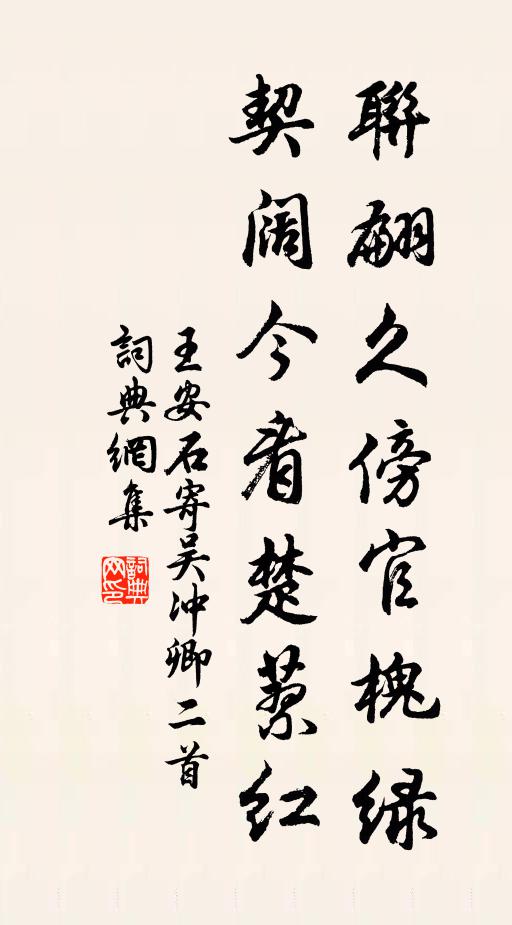 聯翩久傍官槐綠
契阔今看楚蔾紅
王安石寄吴冲卿二首
詞典網集
詞典网印